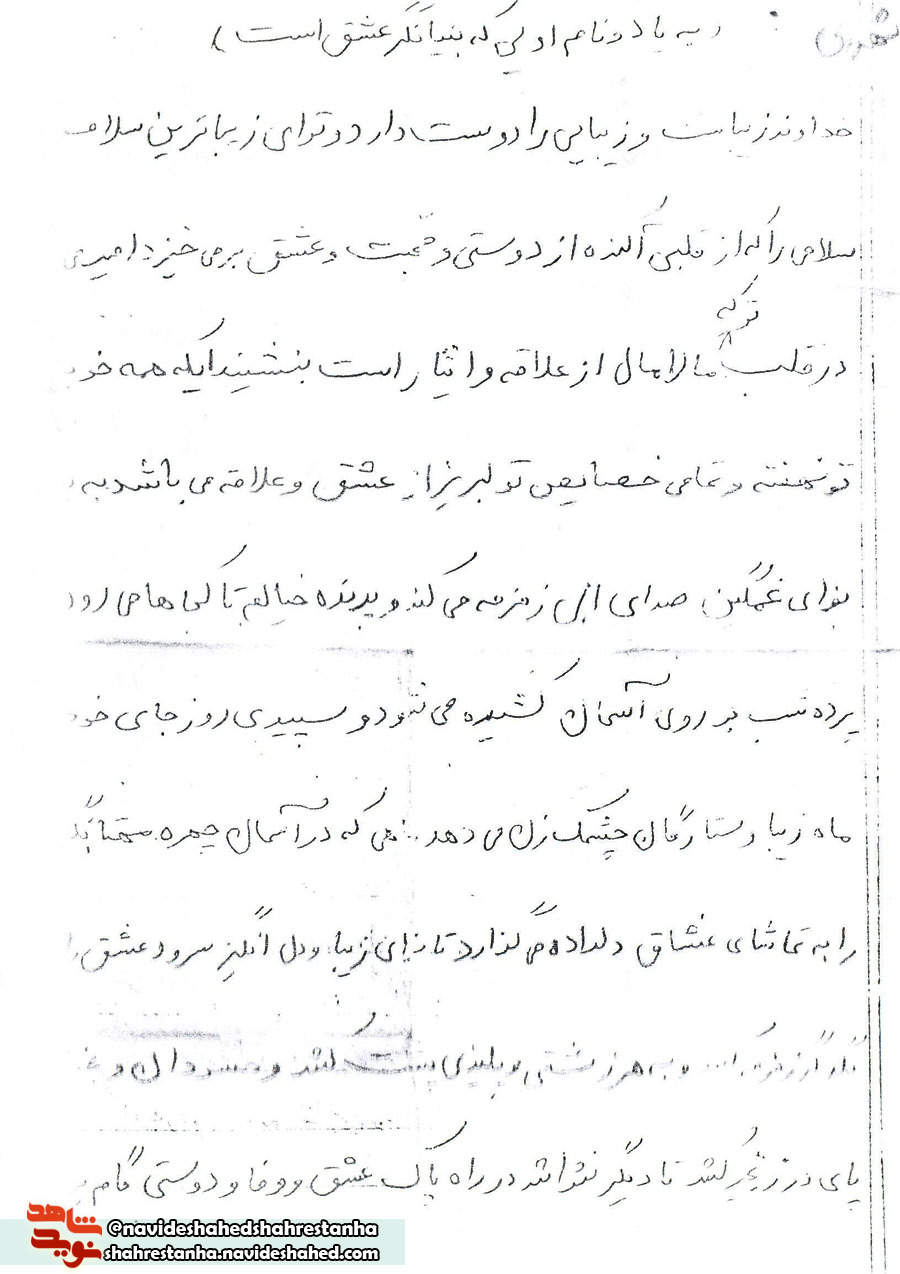 (به یاد و نام اویی که بیانگر عشق است)
خداوند زیباست و زیبایی را دوست دارد و تو ای زیباترین سلام
سلامی را که از قلبی آکنده از دوستی و محبت و عشق برمی خیزد امید
در قلب تو که مالامال از علاقه و ایثار است بنشیند ایکه همه
تو نهفته و تمامی خصایص تو لبریز از عشق و علاقه می باشد به
نوای غمگین صدای زمزمه می کند و پرنده خیالم تا کجاها می رود
پرده شب بر روی آسمان کشیده می شود و سپیدی روز جای
ماه زیبا و ستارگان چشمک زن می دهد که در آسمان چهره
را به تماشای عشاق دلداده می گذارد تا زیبا و دل انگیز سرود عشق
هر زشتی و پلیدی پشت کنند و
پای در زنجیر کنند تا دیگر نتوانند در راه پاک عشق و وفا و دوستی گام
شاهد
نوید
@navideshahedshahrestanha
shahrestanha.navideshahed.com